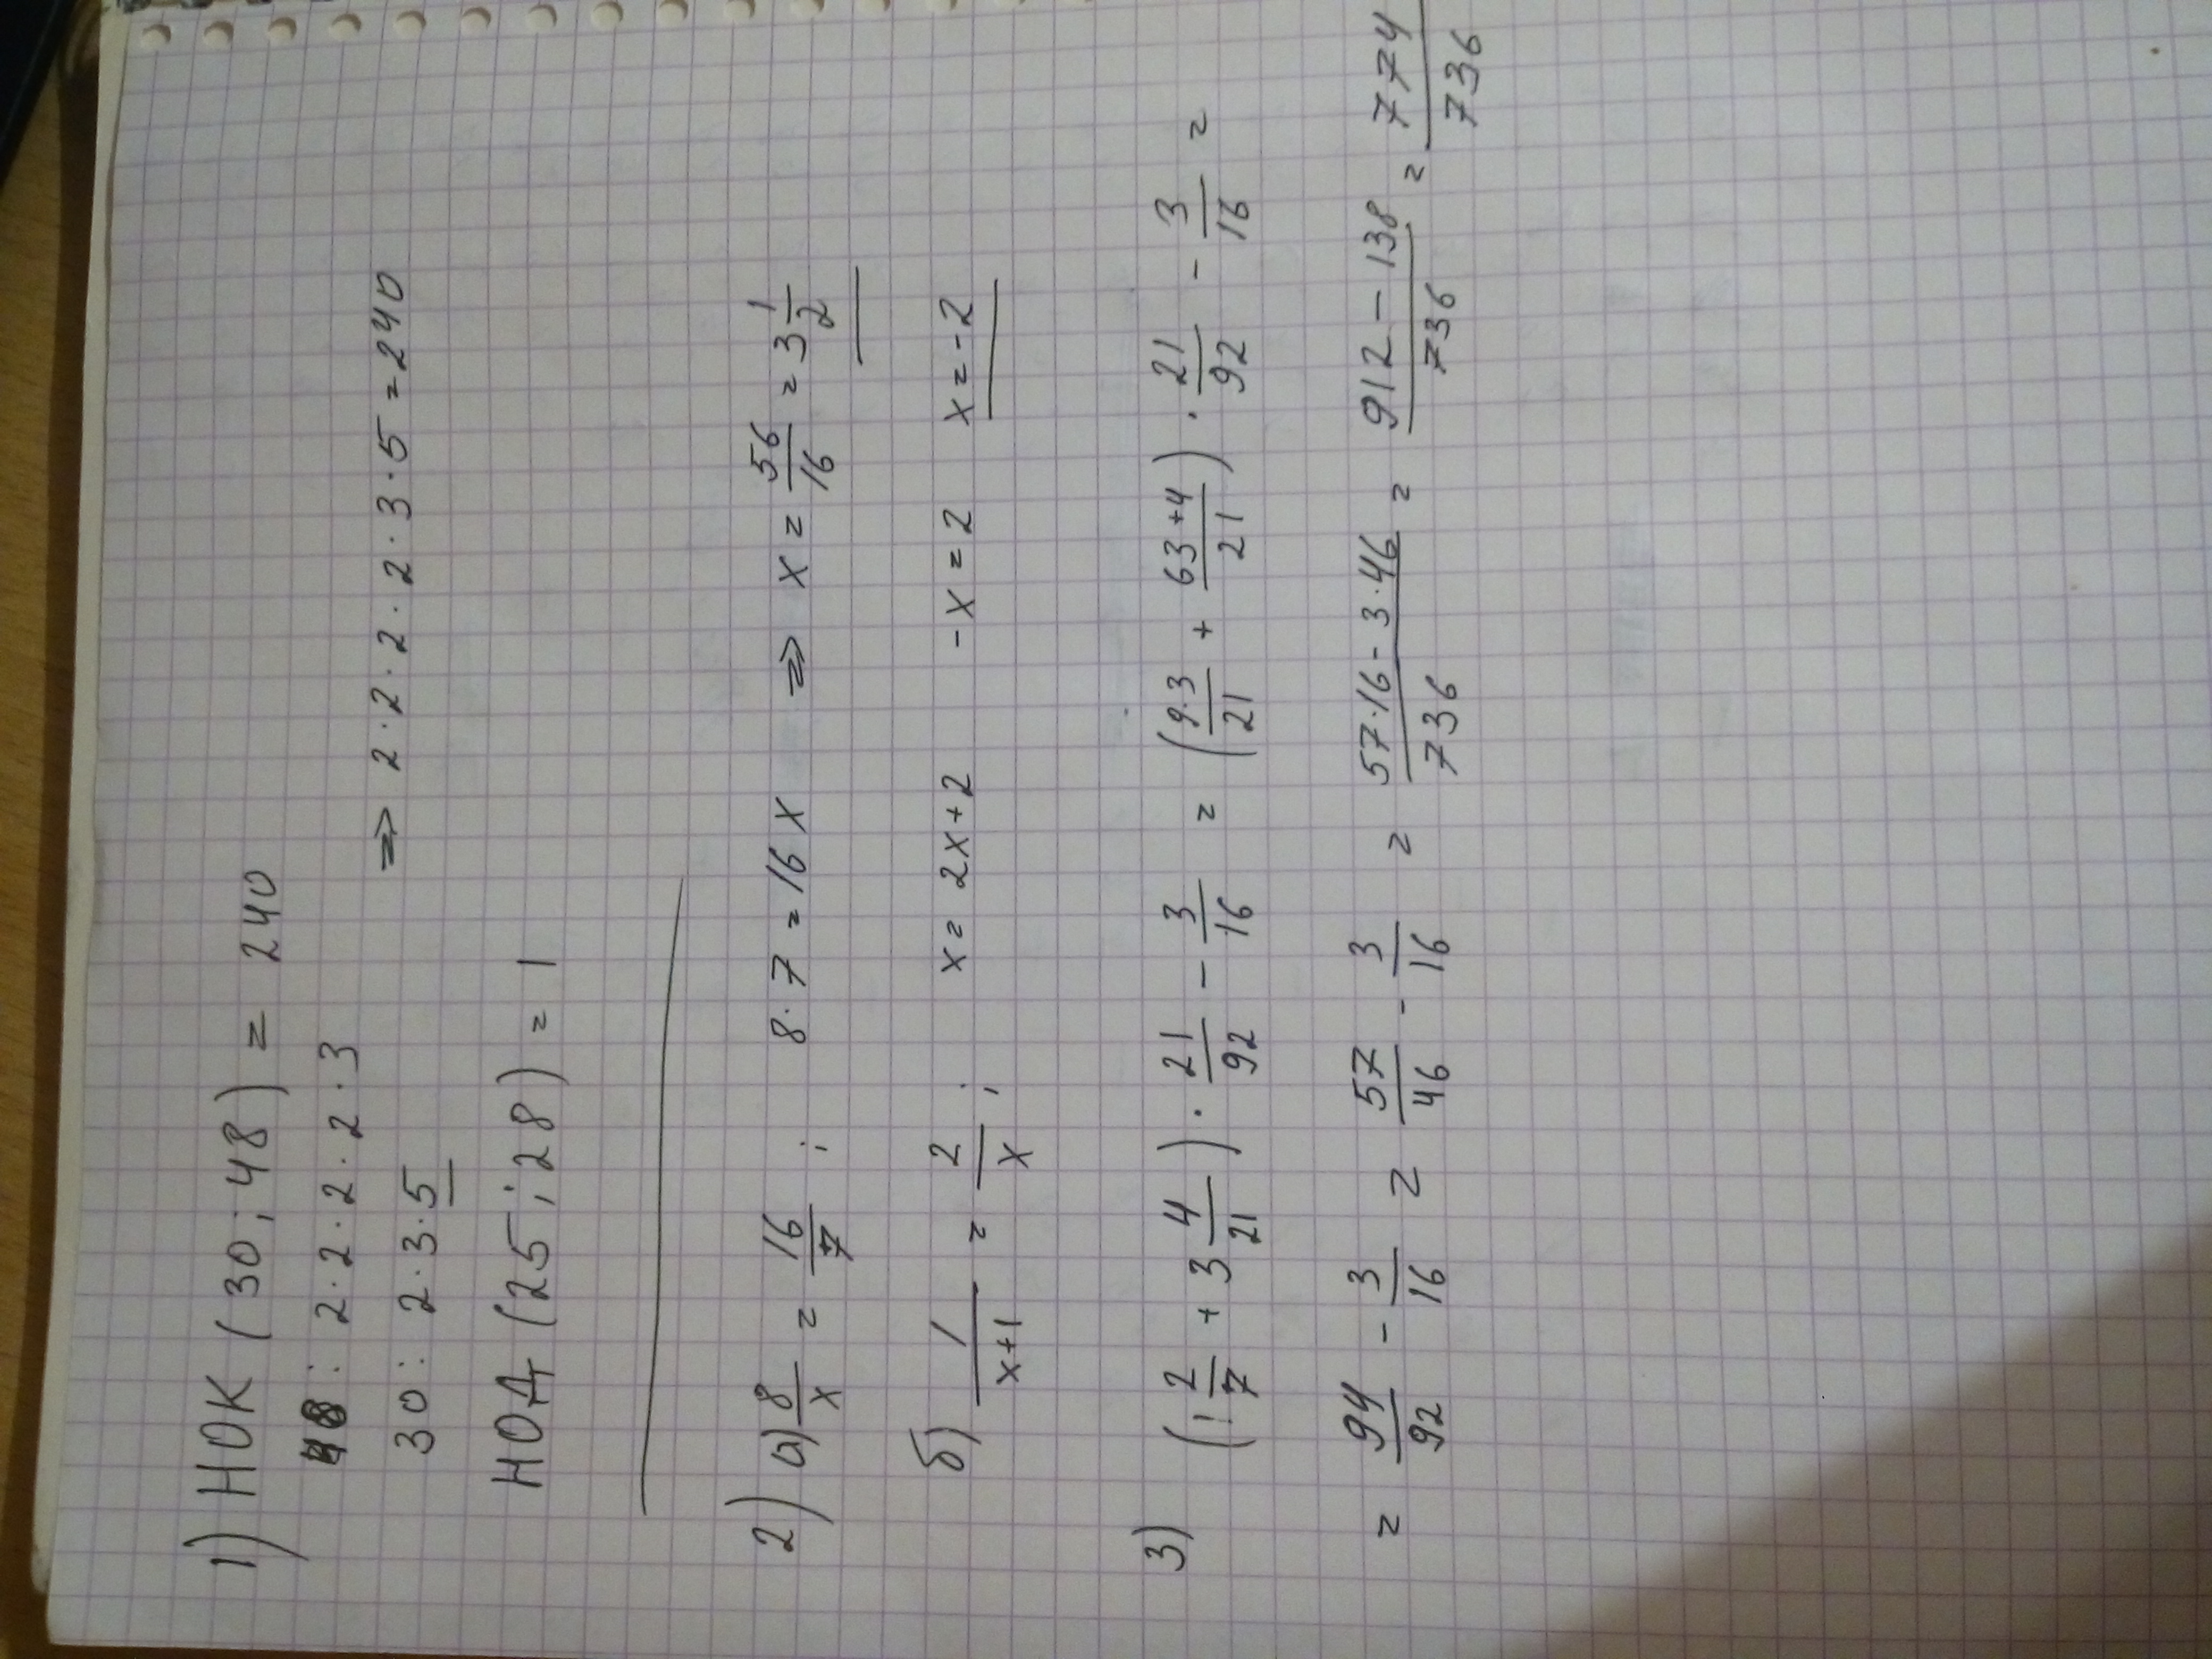 1) НОК (30; 48) = 240
48: 2·2·2·2·3
30: 2·3·5
=> 2·2·2·2·3·5 = 240
НОД (25; 28) = 1
2) а) 8/x = 16/7 ; 8·7 = 16x => x = 56/16 = 3 1/2
б) 1/(x+1) = 2/x ; x = 2x+2 -x = 2 x = -2
3) (1 2/7 + 3 4/21) · 21/92 - 3/16 = (9·3/21 + (63+4)/21) · 21/92 - 3/16 =
= 94/92 - 3/16 = 57/46 - 3/16 = (57·16 - 3·46)/736 = (912 - 138)/736 = 774/736